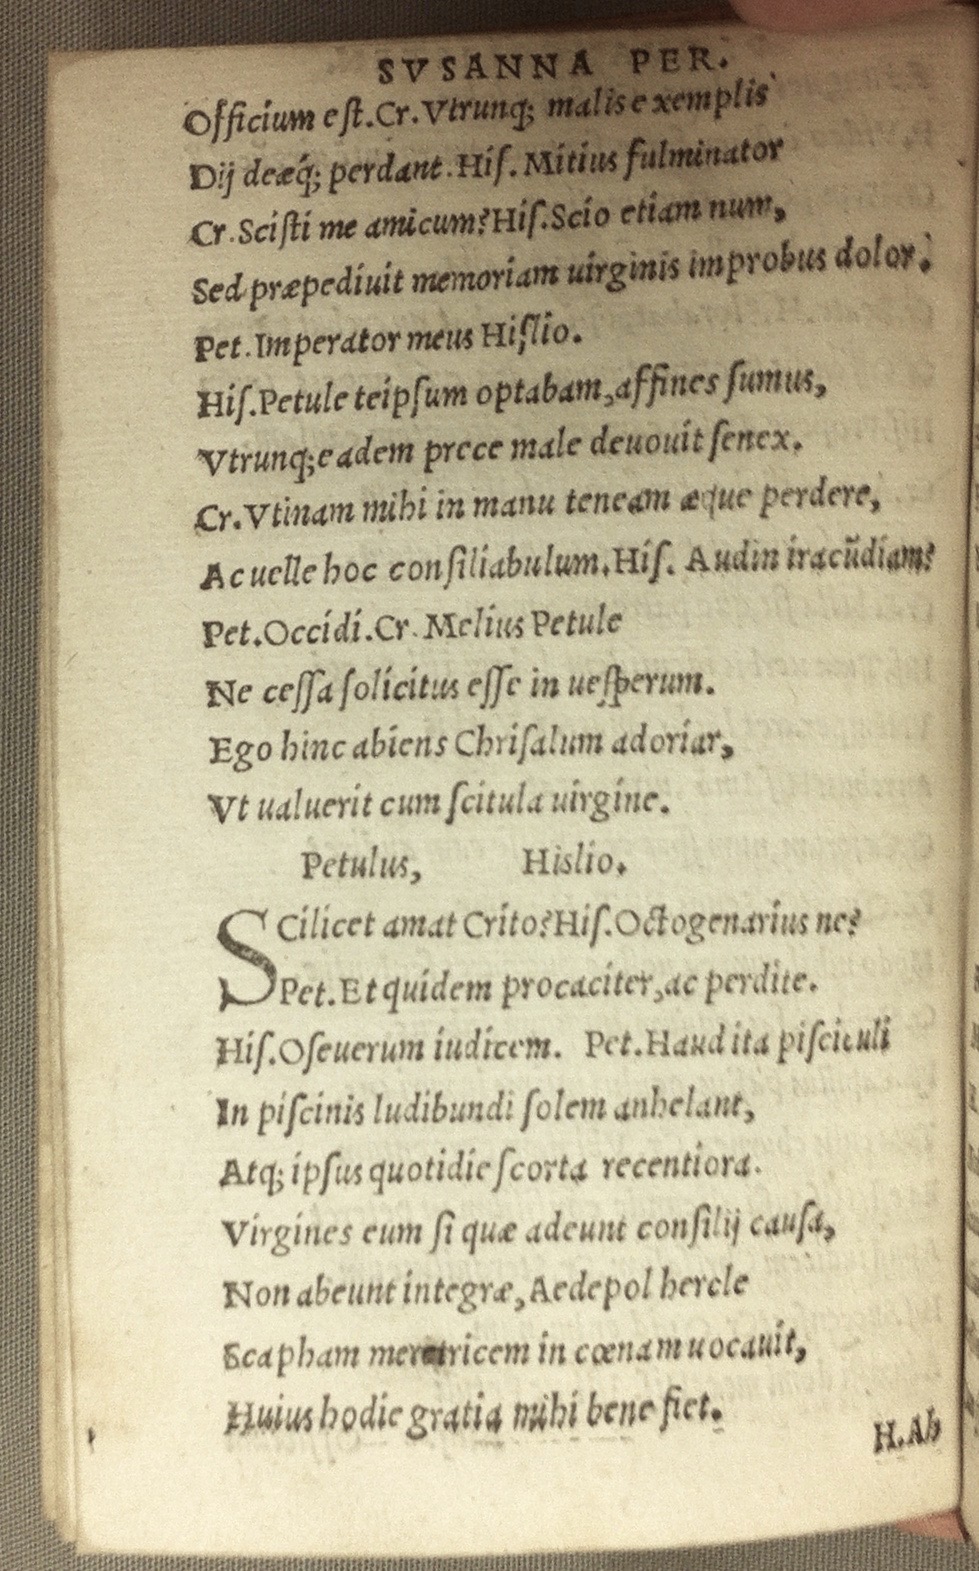 SVSANNA PER.
Officium eſt.Cr.Vtrunq; malis exemplis
Dij deæq́; perdant.Hiſ.Mitius fulminator
Cr.Sciſti me amicum?Hiſ.Scio etiam num,
Sed præpediuit memoriam uirginis improbus dolor.
Pet.Imperator meus Hiſlio.
Hiſ.Petule teipſum optabam,affines ſumus,
Vtrunq;eadem prece male deuouit ſenex.
Cr.Vtinam mihi in manu teneam æque perdere,
Ac uelle hoc conſiliabulum.Hiſ. Audin iracūdiam?
Pet.Occidi.Cr.Melius Petule
Ne ceſſa ſolicitus eſſe in ueſperum.
Ego hinc abiens Chriſalum adoriar,
Vt ualuerit cum ſcitula uirgine.
Petulus, Hislio.
SCilicet amat Crito?Hiſ.Octogenarius ne?
Pet.Et quidem procaciter,ac perdite.
Hiſ.O ſeuerum iudicem. Pet.Haud ita piſciculi
In piſcinis ludibundi ſolem anhelant,
Atq; ipſus quotidie ſcorta recentiora.
Virgines eum ſi quæ adeunt conſilij cauſa,
Non abeunt integræ,Aedepol hercle
Scapham meretricem in cœnam uocauit,
Huius hodie gratia mihi bene fiet.
H.Ab